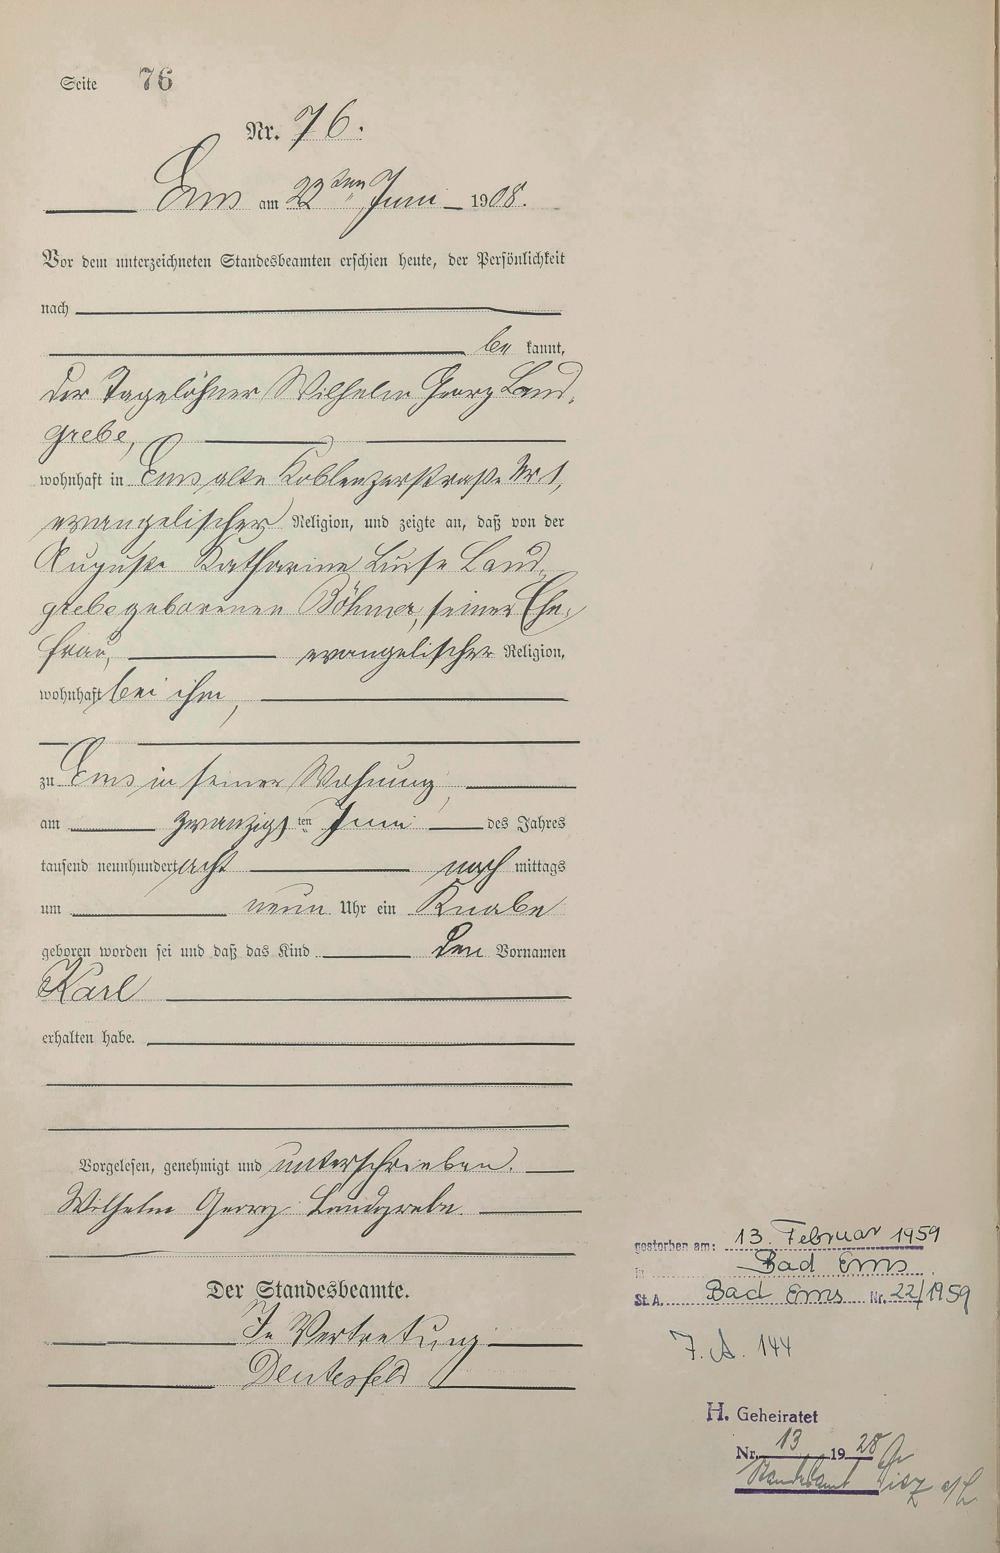 Seite 76
Nr. 76.
Ems am 22ten Juni 1908.
Vor dem unterzeichneten Standesbeamten erschien heute, der Persönlichkeit
nach
be kannt,
der Tagelöhner Wilhelm Georg Land-
grebe,
wohnhaft in Ems alte Koblenzerstraße Nr 1,
evangelischer Religion, und zeigte an, daß von der
Auguste Katharine Luise Land-
grebe geborenen Böhmer, seiner Ehe-
frau,
evangelischer Religion,
wohnhaft bei ihm,
zu Ems in seiner Wohnung,
am zwanzigsten Juni des Jahres
tausend neunhundert acht nach mittags
um neun Uhr ein Knabe
geboren worden sei und daß das Kind den Vornamen
Karl
erhalten habe.
Vorgelesen, genehmigt und unterschrieben.
Wilhelm Georg Landgrebe
Der Standesbeamte.
In Vertretung
gestorben am: 13. Februar 1959
in Bad Ems
St. A. Bad Ems Nr. 22/1959
7. A. 144
H. Geheiratet
Nr. 13 1928
Standesamt Diez a/L